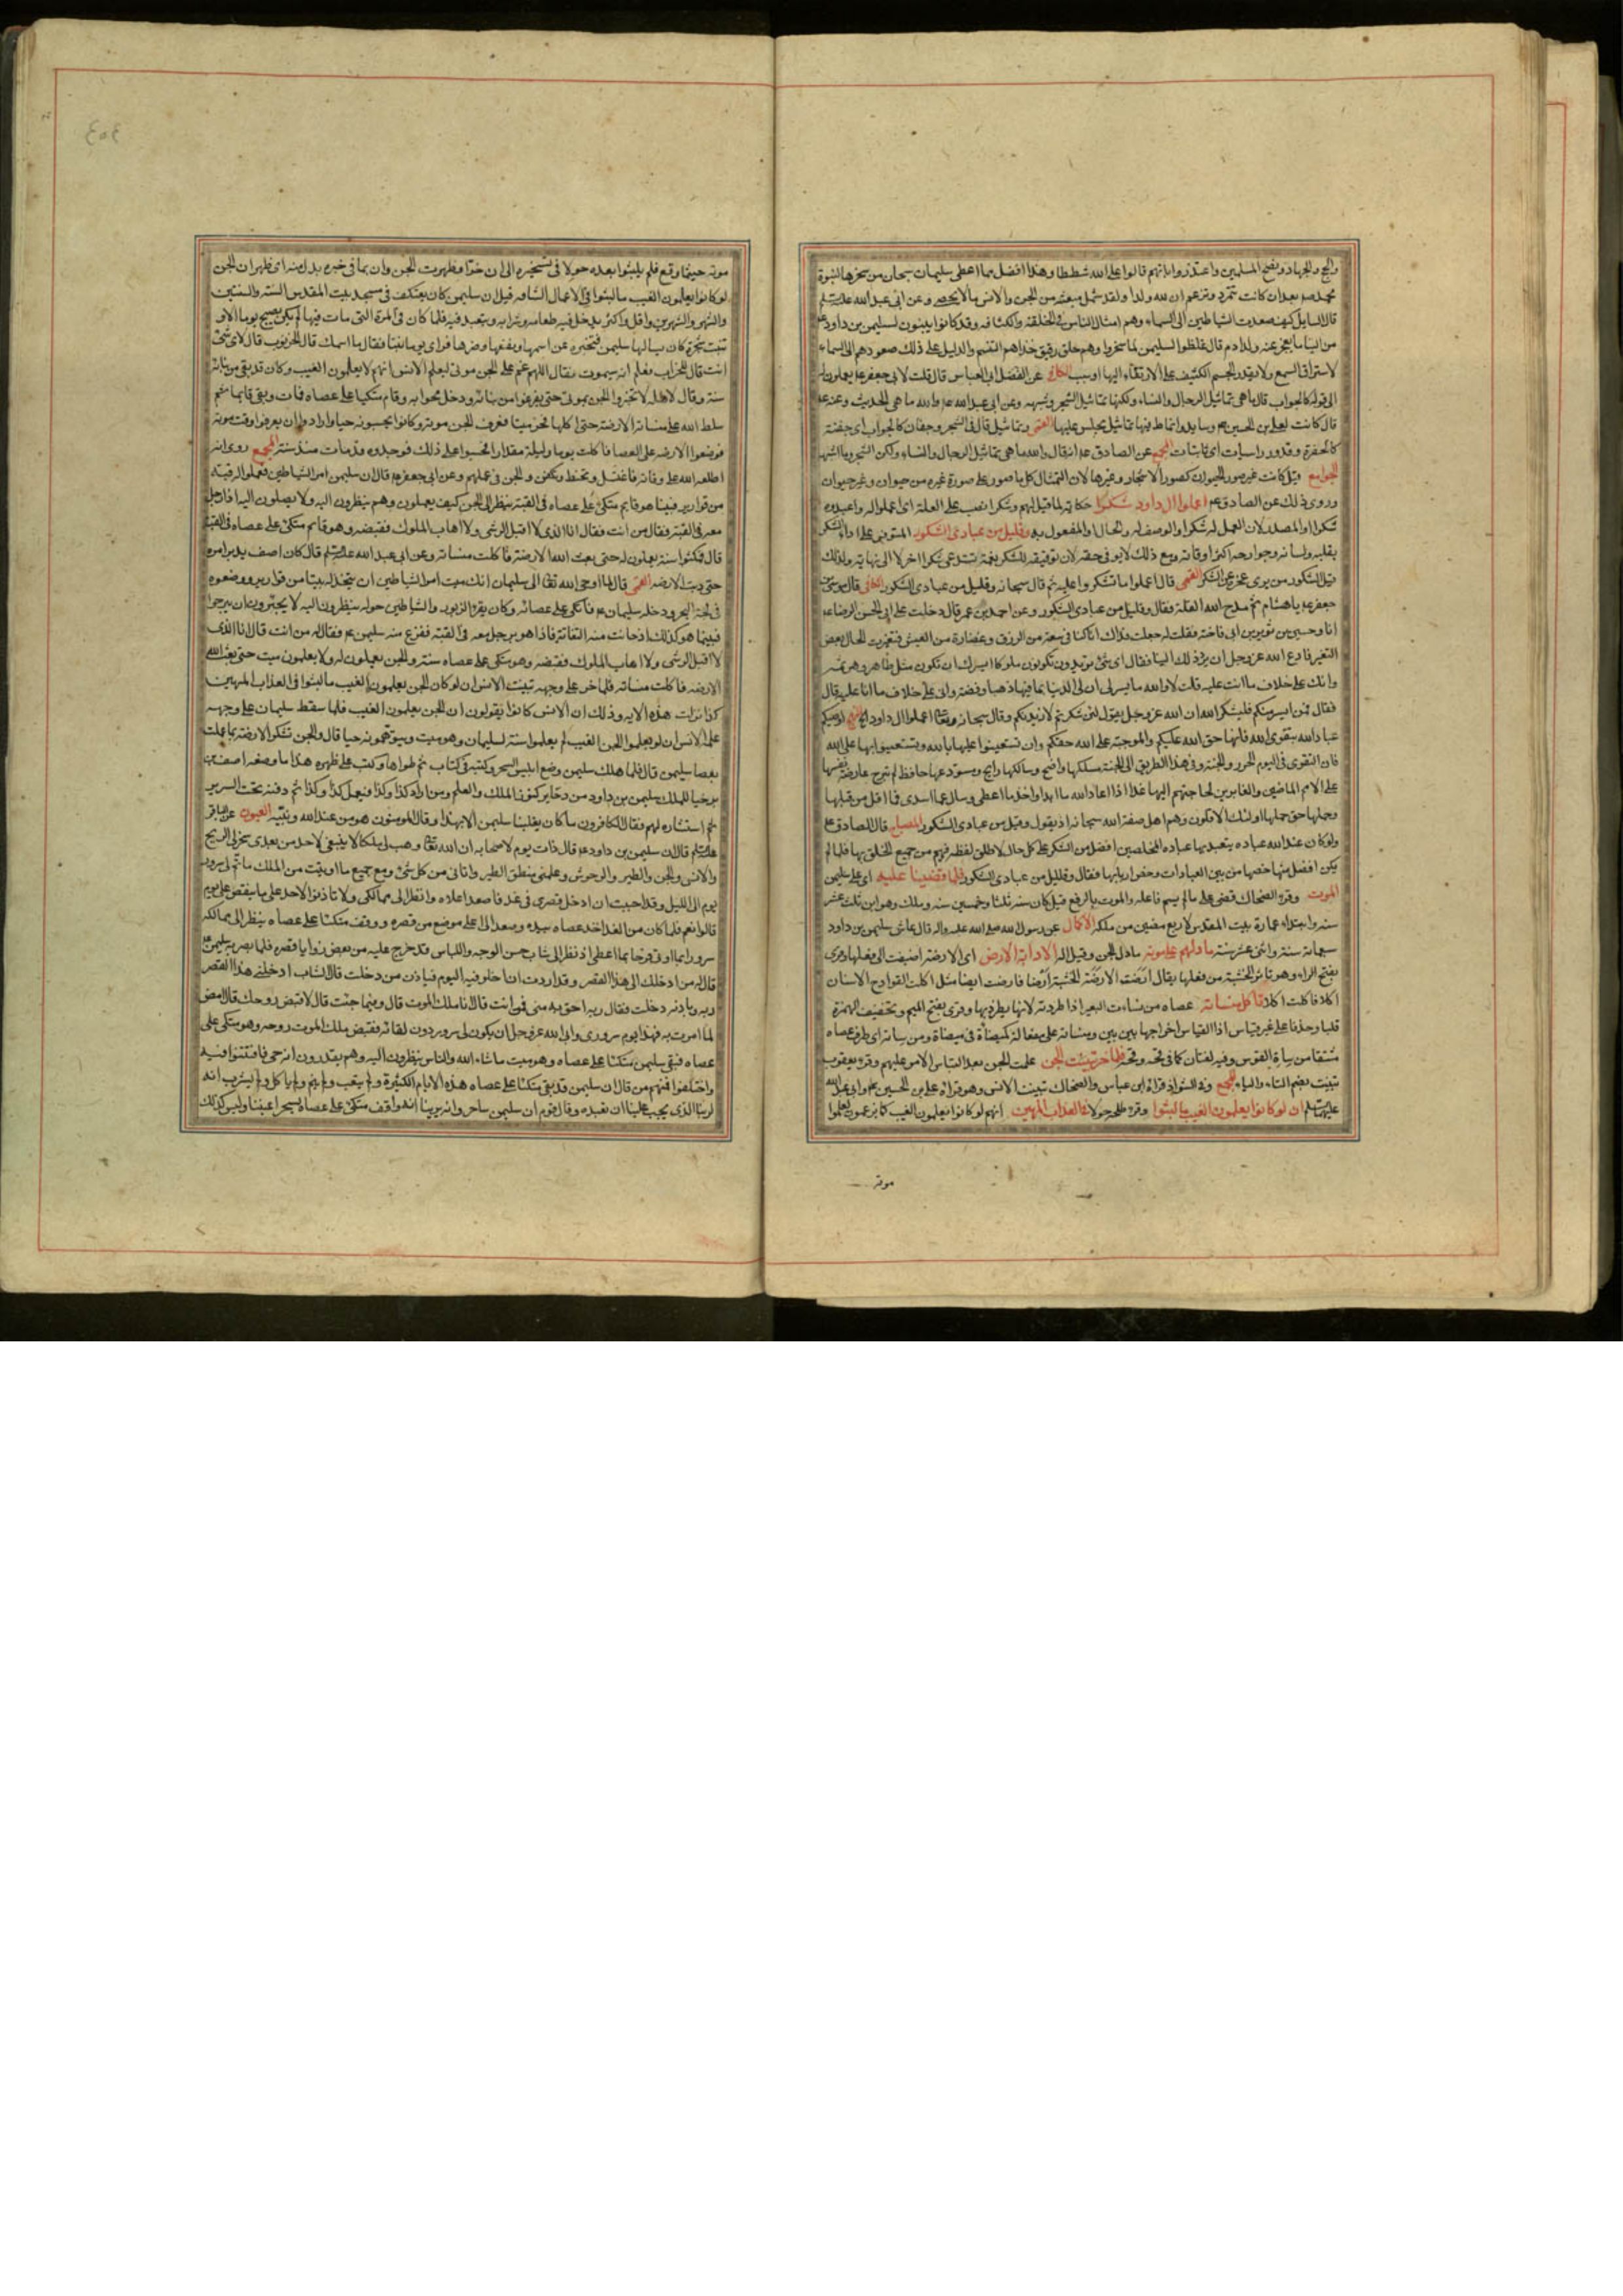 والحج والجهاد ونصح المسلمين واعتذروا بانهم قالوا على الله شططا وهذا افضل مما اعطى سليمان سبحان من سخرها لنبوة
محمد صم بعد ان كانت تتمرد وتزعم ان لله ولدا ولقد شمل مبعثه من الجن والانس ما لا يحصى وعن ابى عبد الله
قال السايل كيف صعدت الشياطين الى السماء وهم امثال الناس فى الخلقة والكثافة وقد كانوا يبنون لسليمن بن داود
من البناء ما يعجز عنه ولد ادم قال غلظوا لسليمن لما سخروا وهم خلق رقيق غذاهم النسيم والدليل على ذلك صعودهم الى السماء
لاستراق السمع ولا يقدر الجسم الكثيف على الارتقاء اليها او بسبب الكافى عن الفضل ابى العباس قال قلت لابى جعفر ع يعملون له
قال ما هى تماثيل الرجال والنساء ولكنها تماثيل الشجر وشبهه وعن ابى عبد الله ع والله ما هى الحديث وعنه ع
قال كانت لعلى بن الحسين ع وسايد وانماط فيها تماثيل يجلس عليها القمى وتماثيل قال فى الشجر وجفان كالجواب اى جفنة
كالحفرة وقدور راسيات اى ثابتات المجمع عن الصادق ع انه قال والله ما هى تماثيل الرجال والنساء ولكن الشجر وما اشبهه
الجوامع قيل كانت غير صور الحيوان كصور الاشجار وغيرها لان التمثال كل ما صور على صورة غيره من حيوان وغير حيوان
وروى ذلك عن الصادق ع اعملوا ال داود شكرا حكاية لما قيل لهم وشكرا نصب على العلة اى اعملوا له واعبدوه
شكرا او المصدر لان العمل له شكر او الوصف له والحال او المفعول به وقليل من عبادى الشكور المتوفر على اداء الشكر
بقلبه ولسانه وجوارحه اكثر اوقاته ومع ذلك لا يوفى حقه لان توفيقه للشكر نعمة تستدعى شكرا اخر لا الى نهاية ولذلك
قيل الشكور من يرى عجزه عن الشكر القمى قال اعملوا ما تشكروا عليه ثم قال سبحانه وقليل من عبادى الشكور الكافى قال موسى بن
جعفر ع يا هشام ثم مدح الله القلة فقال وقليل من عبادى الشكور وعن احمد بن عمر قال دخلت على ابى الحسن الرضا ع
انا وحسين بن ثوير بن ابى فاخته فقلت له جعلت فداك انا كنا فى سعة من الرزق وغضارة من العيش فتغيرت الحال بعض
التغير فادع الله عز وجل ان يرد ذلك الينا فقال اى شئ تريدون تكونون ملوكا ايسرك ان تكون مثل طاهر وهرثمه
وانك على خلاف ما انت عليه قلت لا والله ما يسرنى ان لى الدنيا بما فيها ذهبا وفضة وانى على خلاف ما انا عليه قال
فقال فمن ايسر منكم فليشكر الله ان الله عز وجل يقول لئن شكرتم لازيدنكم وقال سبحانه وتعالى اعملوا ال داود اوصيكم
عباد الله بتقوى الله فانها حق الله عليكم والموجبة على الله حقكم وان تستعينوا عليها بالله وتستعينوا بها على الله
فان التقوى فى اليوم الحرز والجنة وفى غد الطريق الى الجنة مسلكها واضح وسالكها رابح ومستودعها حافظ لم تبرح عارضة نفسها
على الامم الماضين والغابرين لحاجتهم اليها غدا اذا اعاد الله ما ابدا واخذ ما اعطى وسال عما اسدى فما اقل من قبلها
وحملها حق حملها اولئك الاقلون وهم اهل صفة الله سبحانه اذ يقول وقليل من عبادى الشكور المصباح قال الصادق ع
ولو كان عند الله عبادة يتعبد بها عباده المخلصين افضل من الشكر على كل حال لاطلق لفظه فيهم من جميع الخلق بها فلما لم
يكن افضل منها خصها من بين العبادات وخص اربابها فقال وقليل من عبادى الشكور فلما قضينا عليه اى على سليمن
الموت وقرء الضحاك قضى على ما لم يسم فاعله والموت بالرفع قيل كان سنه ثلثا وخمسين سنه وملك وهو ابن ثلث عشر
سنه وابتداء عمارة بيت المقدس لاربع مضين من ملكه الاكمال عن رسول الله صلى الله عليه واله قال عاش سليمن بن داود
سبعماة سنة واثنى عشر سنة ما دلهم على موته ما دل الجن وقيل اله الا دابة الارض اى الارضة اضيفت الى فعلها وقرى
بفتح الراء وهو تاثر الخشبة من فعلها يقال ارضت الارضة الخشبة ارضا فارضت ارضا مثل اكلت القوادح الاسنان
اكلا فاكلت اكلا تاكل منساته عصاه من نساءت البعير اذا طردته لانها يطرد بها وقرى بفتح الميم وتخفيف الهمزة
قلبا وحذفا على غير قياس اذ القياس اخراجها بين بين ومنساته على مفعالة كميضاة فى ميضاة ومن ساته اى طرف عصاه
مشتقا من ساة القوس وفيه لغتان كما فى قحة وقحة فلما خر تبينت الجن علمت الجن بعد التباس الامر عليهم وقرء يعقوب
تبينت بضم التاء والباء المجمع وفى الشواذ قراءة ابن عباس والضحاك تبينت الانس وهو قراءة على بن الحسين ع وابى عبد الله
ان لو كانوا يعلمون الغيب ما لبثوا حولا فى العذاب المهين انهم لو كانوا يعلمون الغيب كما يزعمون لعلموا
موته
موته حيثما وقع فلم يلبثوا بعده حولا فى تسخيره الى ان خر او ظهرت الجن وان بما فى خبره بدل منه اى ظهر ان الجن
لو كانوا يعلمون الغيب ما لبثوا فى الاعمال الشاقه قيل ان سليمن كان يعتكف فى مسجد بيت المقدس السنه والسنتين
والشهر والشهرين واقل واكثر يدخل فيه طعامه وشرابه ويتعبد فيه فلما كان فى المرة التى مات فيها لم يكن يصبح يوما الا و
تنبت شجرة كان يسالها سليمن فتخبره عن اسمها ونفعها وضرها فراى يوما نبتا فقال ما اسمك قال الخرنوب قال لاى شئ
انت قال للخراب فعلم انه سيموت فقال اللهم عم على الجن موتى ليعلم الانس انهم لا يعلمون الغيب وكان قد بقى من بنائه
سنة وقال لاهله لا تخبروا الجن بموتى حتى يفرغوا من بنائه ودخل محرابه وقام متكيا على عصاه فمات وبقى قايما
سلط الله على منساته الارضة حتى اكلها فخر ميتا فعرف الجن موته وكانوا يحسبونه حيا وارادوا ان يعرفوا وقت موته
فوضعوا الارضه على العصا فاكلت يوما وليلة مقدارا فحسبوا على ذلك فوجدوه قد مات منذ سنة المجمع روى انه
اطلعه الله على وفاته فاغتسل وتحنط وتكفن والجن فى عملهم وعن ابى جعفر ع قال ان سليمن امر الشياطين فعملوا له قبة
من قوارير فبينا هو قايم متكئ على عصاه فى القبة ينظر الى الجن كيف يعملون وهم ينظرون اليه ولا يصلون اليه اذا رجل
معه فى القبة فقال من انت فقال انا الذى لا اقبل الرشى ولا اهاب الملوك فقبضه وهو قايم متكئ على عصاه فى القبة
قال فمكثوا سنة يعملون له حتى بعث الله الارضة فاكلت منساته وعن ابى عبد الله قال كان اصف يدبر امره
حتى دبت الارضه القمى قال لما اوحى الله تعالى الى سليمان انك ميت امر الشياطين ان يتخذ له بيتا من قوارير ووضعوه
فى لجة البحر ودخله سليمان ع فاتكى على عصائه وكان يقرء الزبور والشياطين حوله ينظرون اليه لا يجترون ان يبرحوا
فبينما هو كذلك اذ حانت منه التفاتة فاذا هو برجل معه فى القبة ففزع منه سليمن ع فقال له من انت قال انا الذى
لا اقبل الرشى ولا اهاب الملوك فقبضه وهو متكى على عصاه سنة والجن يعملون له ولا يعلمون ميت حتى بعث الله
الارضه فاكلت منساته فلما خر على وجهه تبينت الانس ان لو كان الجن يعلمون الغيب ما لبثوا فى العذاب المهين
كذا نزلت هذه الايه وذلك ان الانس كانوا يقولون ان الجن يعلمون الغيب فلما سقط سليمان على وجهه
علم الانس ان لو يعلموا الجن الغيب لم يعملوا سنة لسليمان وهو ميت ويتوهمونه حيا قال والجن تشكر الارضة بما عملت
بعصا سليمن قال فلما هلك سليمن وضع ابليس السحر وكتبه فى كتاب ثم طواها وكتب على ظهره هذا ما وضعه اصف بن
برخيا للملك سليمن بن داود من ذخاير كنوز الملك والعلم ومن اراد كذا وكذا فيعمل كذا وكذا ثم دفنه تحت السرير
ثم استشاره لهم فقال الكافرون ما كان يغلبنا سليمن الا بهذا وقال المومنون هو من عند الله ونبيه العيون عن الباقر
قال ان سليمن بن داود ع قال ذات يوم لاصحابه ان الله تعالى وهب لى ملكا لا ينبغى لاحد من بعدى سخر لى الريح
والانس والجن والطير والوحوش وعلمنى منطق الطير واتانى من كل شئ ومع جميع ما اوتيت من الملك ما تم لى سرور
يوم الى الليل وقد احببت ان ادخل قصرى فى غد فاصعد اعلاه وانظر الى ممالكى ولا تاذنوا لاحد على ما ينقص على يوم
قالوا نعم فلما كان من الغد اخذ عصاه بيده وصعد الى اعلى موضع من قصره ووقف متكئا على عصاه ينظر الى ممالكه
سرورا بما اوتى فرحا بما اعطى اذ نظر الى شاب حسن الوجه واللباس قد خرج عليه من بعض زوايا قصره فلما بصر به سليمن
قال له من ادخلك الى هذا القصر وقد اردت ان اخلو فيه اليوم فباذن من دخلت قال الشاب ادخلنى هذا القصر
ربه وباذنه دخلت فقال ربه احق به منى فمن انت قال انا ملك الموت قال وفيما جئت قال لاقبض روحك قال امض
لما امرت به فهذا يوم سرورى وابى الله عز وجل ان يكون لى سرور دون لقائه فقبض ملك الموت روحه وهو متكى على
عصاه فبقى سليمن متكئا على عصاه وهو ميت ما شاء الله والناس ينظرون اليه وهم يقدرون انه حى فافتتنوا فيه
واختلفوا فمنهم من قال ان سليمن قد بقى متكئا على عصاه هذه الايام الكثيرة ولم يتعب ولم ينم ولم ياكل ولم يشرب انه
لربنا الذى يجب علينا ان نعبده وقال قوم ان سليمن ساحر وانه يرينا انه واقف متكئ على عصاه يسحر اعيننا وليس كذلك